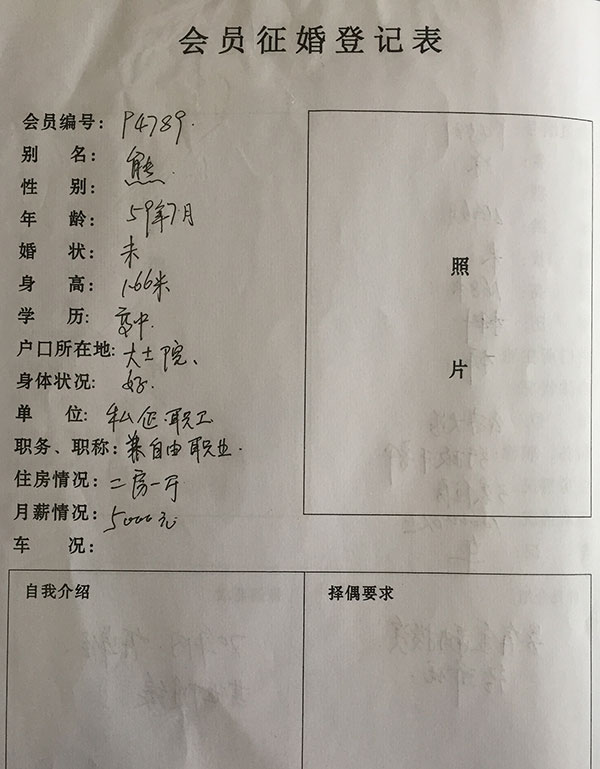 会员征婚登记表
会员编号：P4789.
别 名：熊
性 别：
年 龄：59年7月
婚 状：未
身 高：1.66米
学 历：高中.
户口所在地：大士院、
身体状况：好.
单 位：私企.职工
职务、职称：兼自由职业.
住房情况：二房一厅
月薪情况：5000元
车 况：
照
片
自我介绍
择偶要求